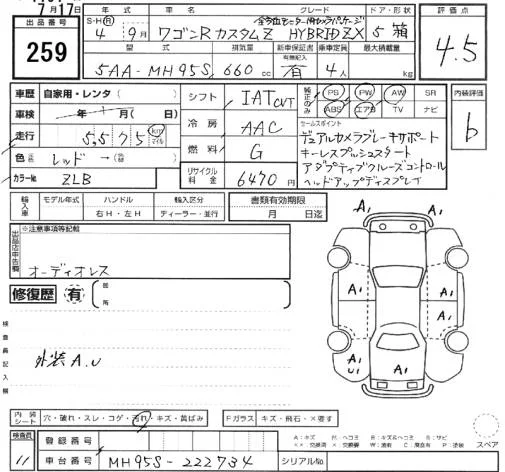 7月17日
出品番号
259
年式 車名 グレード ドア・形状
S・H(R) 全方位モニター用カメラパッケージ
4年9月 ワゴンRカスタムZ HYBRID ZX 5 箱
型式 排気量 新車保証書 乗車定員 最大積載量
有無記入
5AA-MH95S 660cc 有 4人 kg
評価点
4.5
車歴 自家用・レンタ( )
車検 年 月( )日
走行 5,575 km マイル
色 レッド→(色替)
カラーNo. ZLB
シフト IAT CVT
冷房 AAC
燃料 G
リサイクル料金 6470円
純正のみ PS PW AW SR
ABS エアB TV ナビ
セールスポイント
デュアルカメラブレーキサポート
キーレスプッシュスタート
アダプティブクルーズコントロール
ヘッドアップディスプレイ
内装評価
b
輸入車 モデル年式 ハンドル 輸入区分 書類有効期限
右H・左H ディーラー・並行 月 日迄
出品店申告欄 ※注意事項等記載
オーディオレス
修復歴 有 箇所
検査員記入欄
外装A.U
A1 A1
A1
A1 A1
A1
U1 A1
内装シート 穴・破れ・スレ・コゲ・汚れ・キズ・黄ばみ Fガラス キズ・飛石・×要す
A:キズ U:ヘコミ B:キズ&ヘコミ S:サビ
X:交換要 XX:交換済 W:波有 C:腐食有 P:塗装
スペア
検査員 11
登録番号
車台番号 MH95S-222734 シリアルNo.